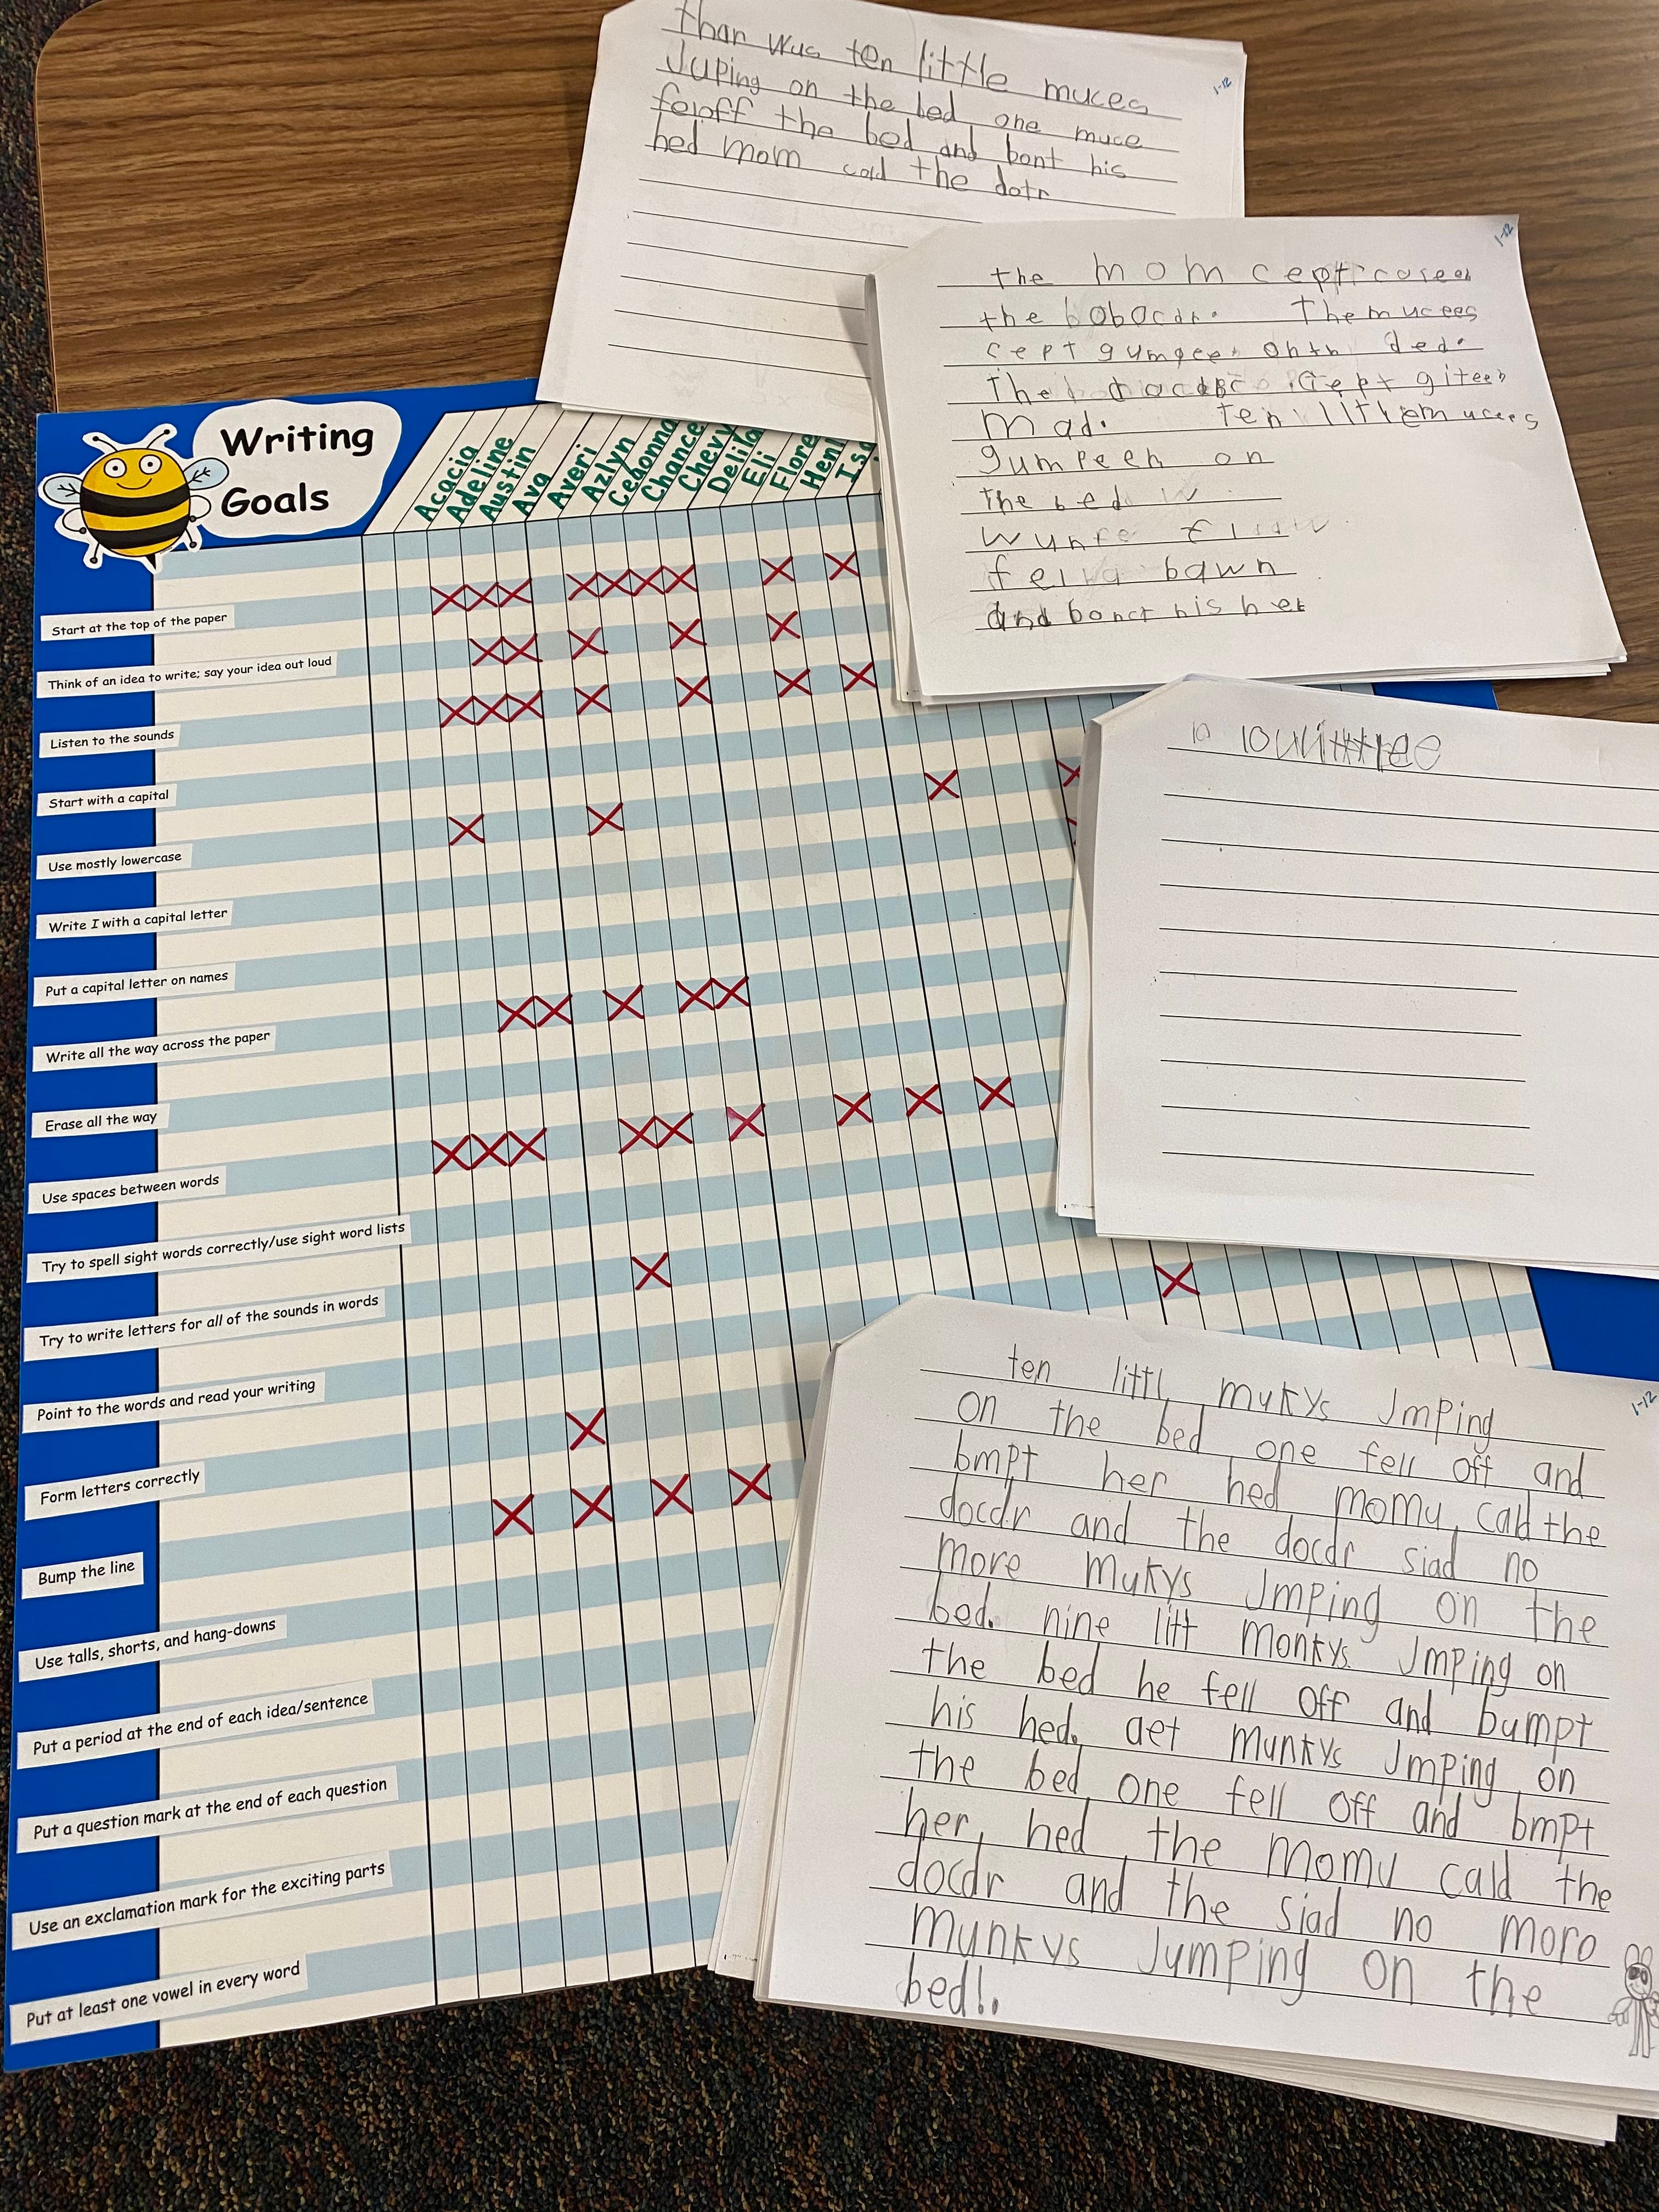 than wus ten little muces
Juping on the bed one muce
feloff the bed and bont his
hed mom cald the dotr
1-12
the mom cept
the bobocdr. The mucees
cept gumpee on th ded.
The cept giteeh
mad. ten littlem ucees
gumpeeh on
the bed
wunre
fell bawn
and bonct his het
1-12
10
ten littl mukys Jmping
on the bed one fell off and
bmpt her hed momy cald the
docdr and the docdr siad no
more mukys Jmping on the
bed. nine litt monkys Jmping on
the bed he fell off and bumpt
his hed. aet munkys Jmping on
the bed one fell off and bmpt
her hed the momy cald the
docdr and the siad no moro
munkys Jumping on the
bed!.
1-12
Writing
Goals
Acacia
Adeline
Austin
Ava
Averi
Azlyn
Ceaonna
Chance
Chevy
Delila
Eli
Flore
Henl
Isa
Start at the top of the paper
Think of an idea to write; say your idea out loud
Listen to the sounds
Start with a capital
Use mostly lowercase
Write I with a capital letter
Put a capital letter on names
Write all the way across the paper
Erase all the way
Use spaces between words
Try to spell sight words correctly/use sight word lists
Try to write letters for all of the sounds in words
Point to the words and read your writing
Form letters correctly
Bump the line
Use talls, shorts, and hang-downs
Put a period at the end of each idea/sentence
Put a question mark at the end of each question
Use an exclamation mark for the exciting parts
Put at least one vowel in every word